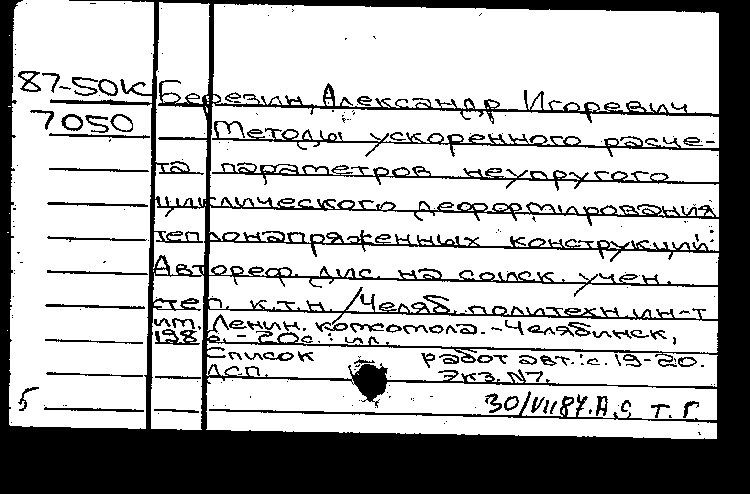 87-50к Березин, Александр Игоревич
7050 Методы ускоренного расче-
та параметров неупругого
циклического деформирования
теплонапряженных конструкций:
Автореф. дис. на соиск. учен.
степ. к.т.н. / Челяб. политехн. ин-т
им. Ленин. комсомола. - Челябинск,
198 . - 20с. : ил.
Список работ авт.: с. 19-20.
ДСП. Экз. №7.
5 30/VII 87. А,9 т. г.